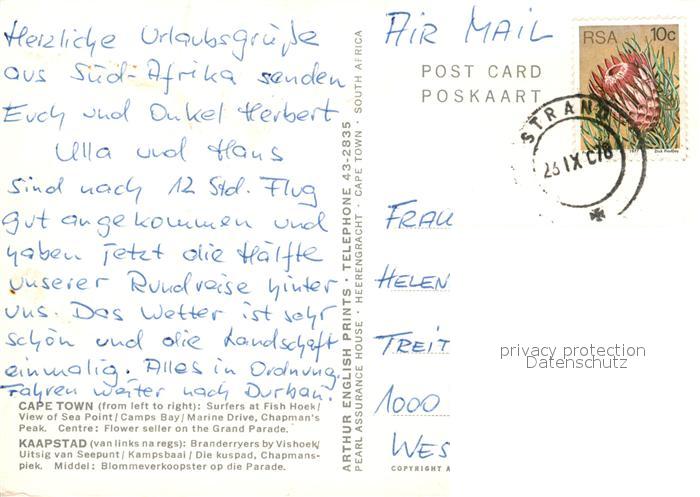 Herzliche Urlaubsgrüße
aus Süd-Afrika senden
Euch und Onkel Herbert
Ulla und Hans
Sind nach 12 Std. Flug
gut angekommen und
haben jetzt die Hälfte
unserer Rundreise hinter
uns. Das Wetter ist sehr
schön und die Landschaft
einmalig. Alles in Ordnung.
Fahren weiter nach Durban.
CAPE TOWN (from left to right): Surfers at Fish Hoek/
View of Sea Point/Camps Bay/Marine Drive, Chapman's
Peak. Centre: Flower seller on the Grand Parade.
KAAPSTAD (van links na regs): Branderryers by Vishoek/
Uitsig van Seepunt/Kampsbaai/Die kuspad, Chapmans-
piek. Middel: Blommeverkoopster op die Parade.
ARTHUR ENGLISH PRINTS · TELEPHONE 43-2835
PEARL ASSURANCE HOUSE · HEERENGRACHT · CAPE TOWN · SOUTH AFRICA
AIR MAIL
POST CARD
POSKAART
RSA 10c
STRAND
23 IX C78
FRAU
HELEN
TREIT
1000
WES
COPYRIGHT A
privacy protection
Datenschutz